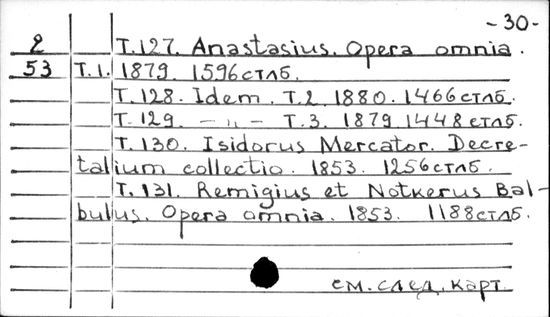 -30-
2 T.127. Anastasius. Opera omnia.
53 T.1. 1879. 1596 стлб.
T.128. Idem. T.2. 1880. 1466 стлб.
T.129. – „ – T.3. 1879 1448 стлб.
T.130. Isidorus Mercator. Decre-
talium collectio. 1853. 1256 стлб.
T.131. Remigius et Notkerus Bal-
bulus. Opera omnia. 1853. 1188 стлб.
см. след. карт.